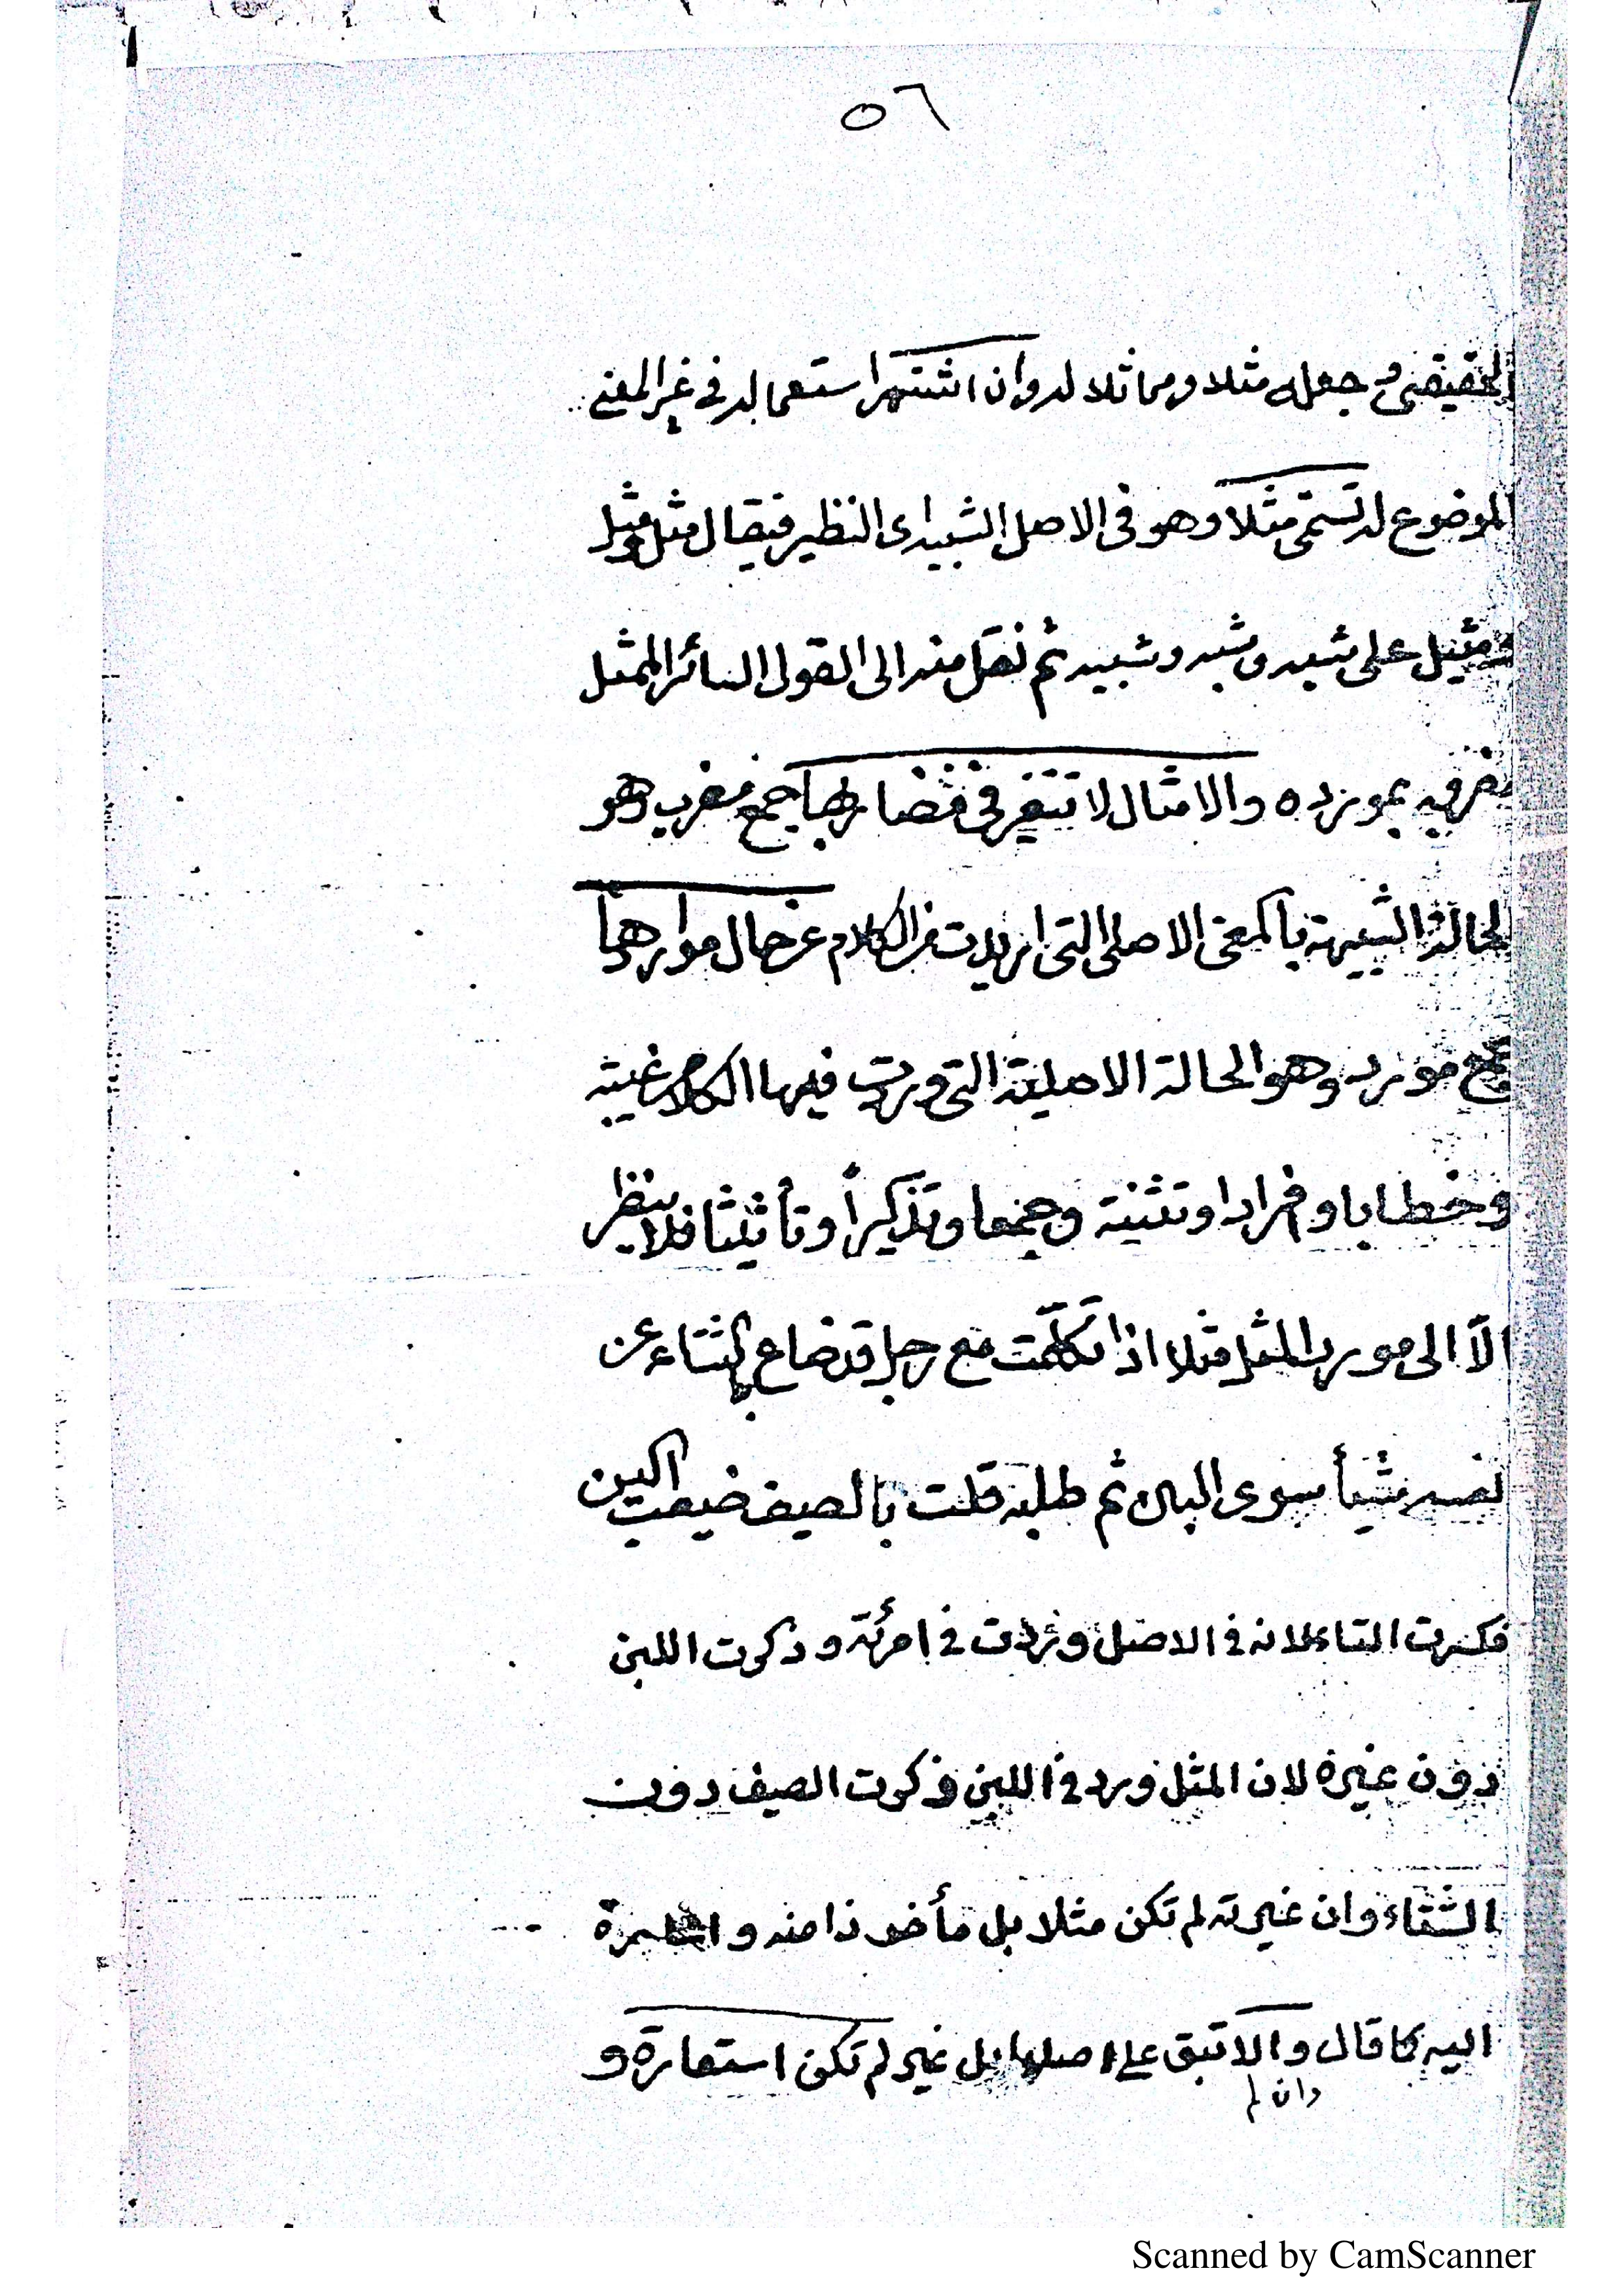 ٥٦
الحقيقي وجعله مثلا ومماثلا له وان اشتهر استعماله في غير المعنى
الموضوع له تسمى مثلا وهو في الاصل الشبيه اى النظير فيقال مثل ومثل
ومثيل على شبه وشبه وشبيه ثم نقل منه الى القول السائر الممثل
مضربه بمورده والامثال لا تتغير في مضاربها جمع مضرب وهو
الحالة الشبيهة بالمعنى الاصلى التى اريدت من الكلام عن حال مواردها
جمع مورد وهو الحالة الاصلية التى وردت فيها الكلام غيبة
وخطابا وافرادا وتثنية وجمعا وتذكيرا وتأنيثا فلا ينظر
الّا الى مورد المثل مثلا اذا تكلّمت مع رجل قد ضاع بالشتاء عن
نفسه شيأ سوى اللبن ثم طلبه قلت بالصيف ضيعت اللبن
فكسرت التاء لانه في الاصل وردت في امرئة وذكرت اللبن
دون غيره لان المثل ورد في اللبن وذكرت الصيف دون
الشتاء وان غيرته لم تكن مثلا بل مأخوذا منه و
اليه كما قال والا تبق على اصلها بل غير لم تكن استعارة و
وان لم
Scanned by CamScanner